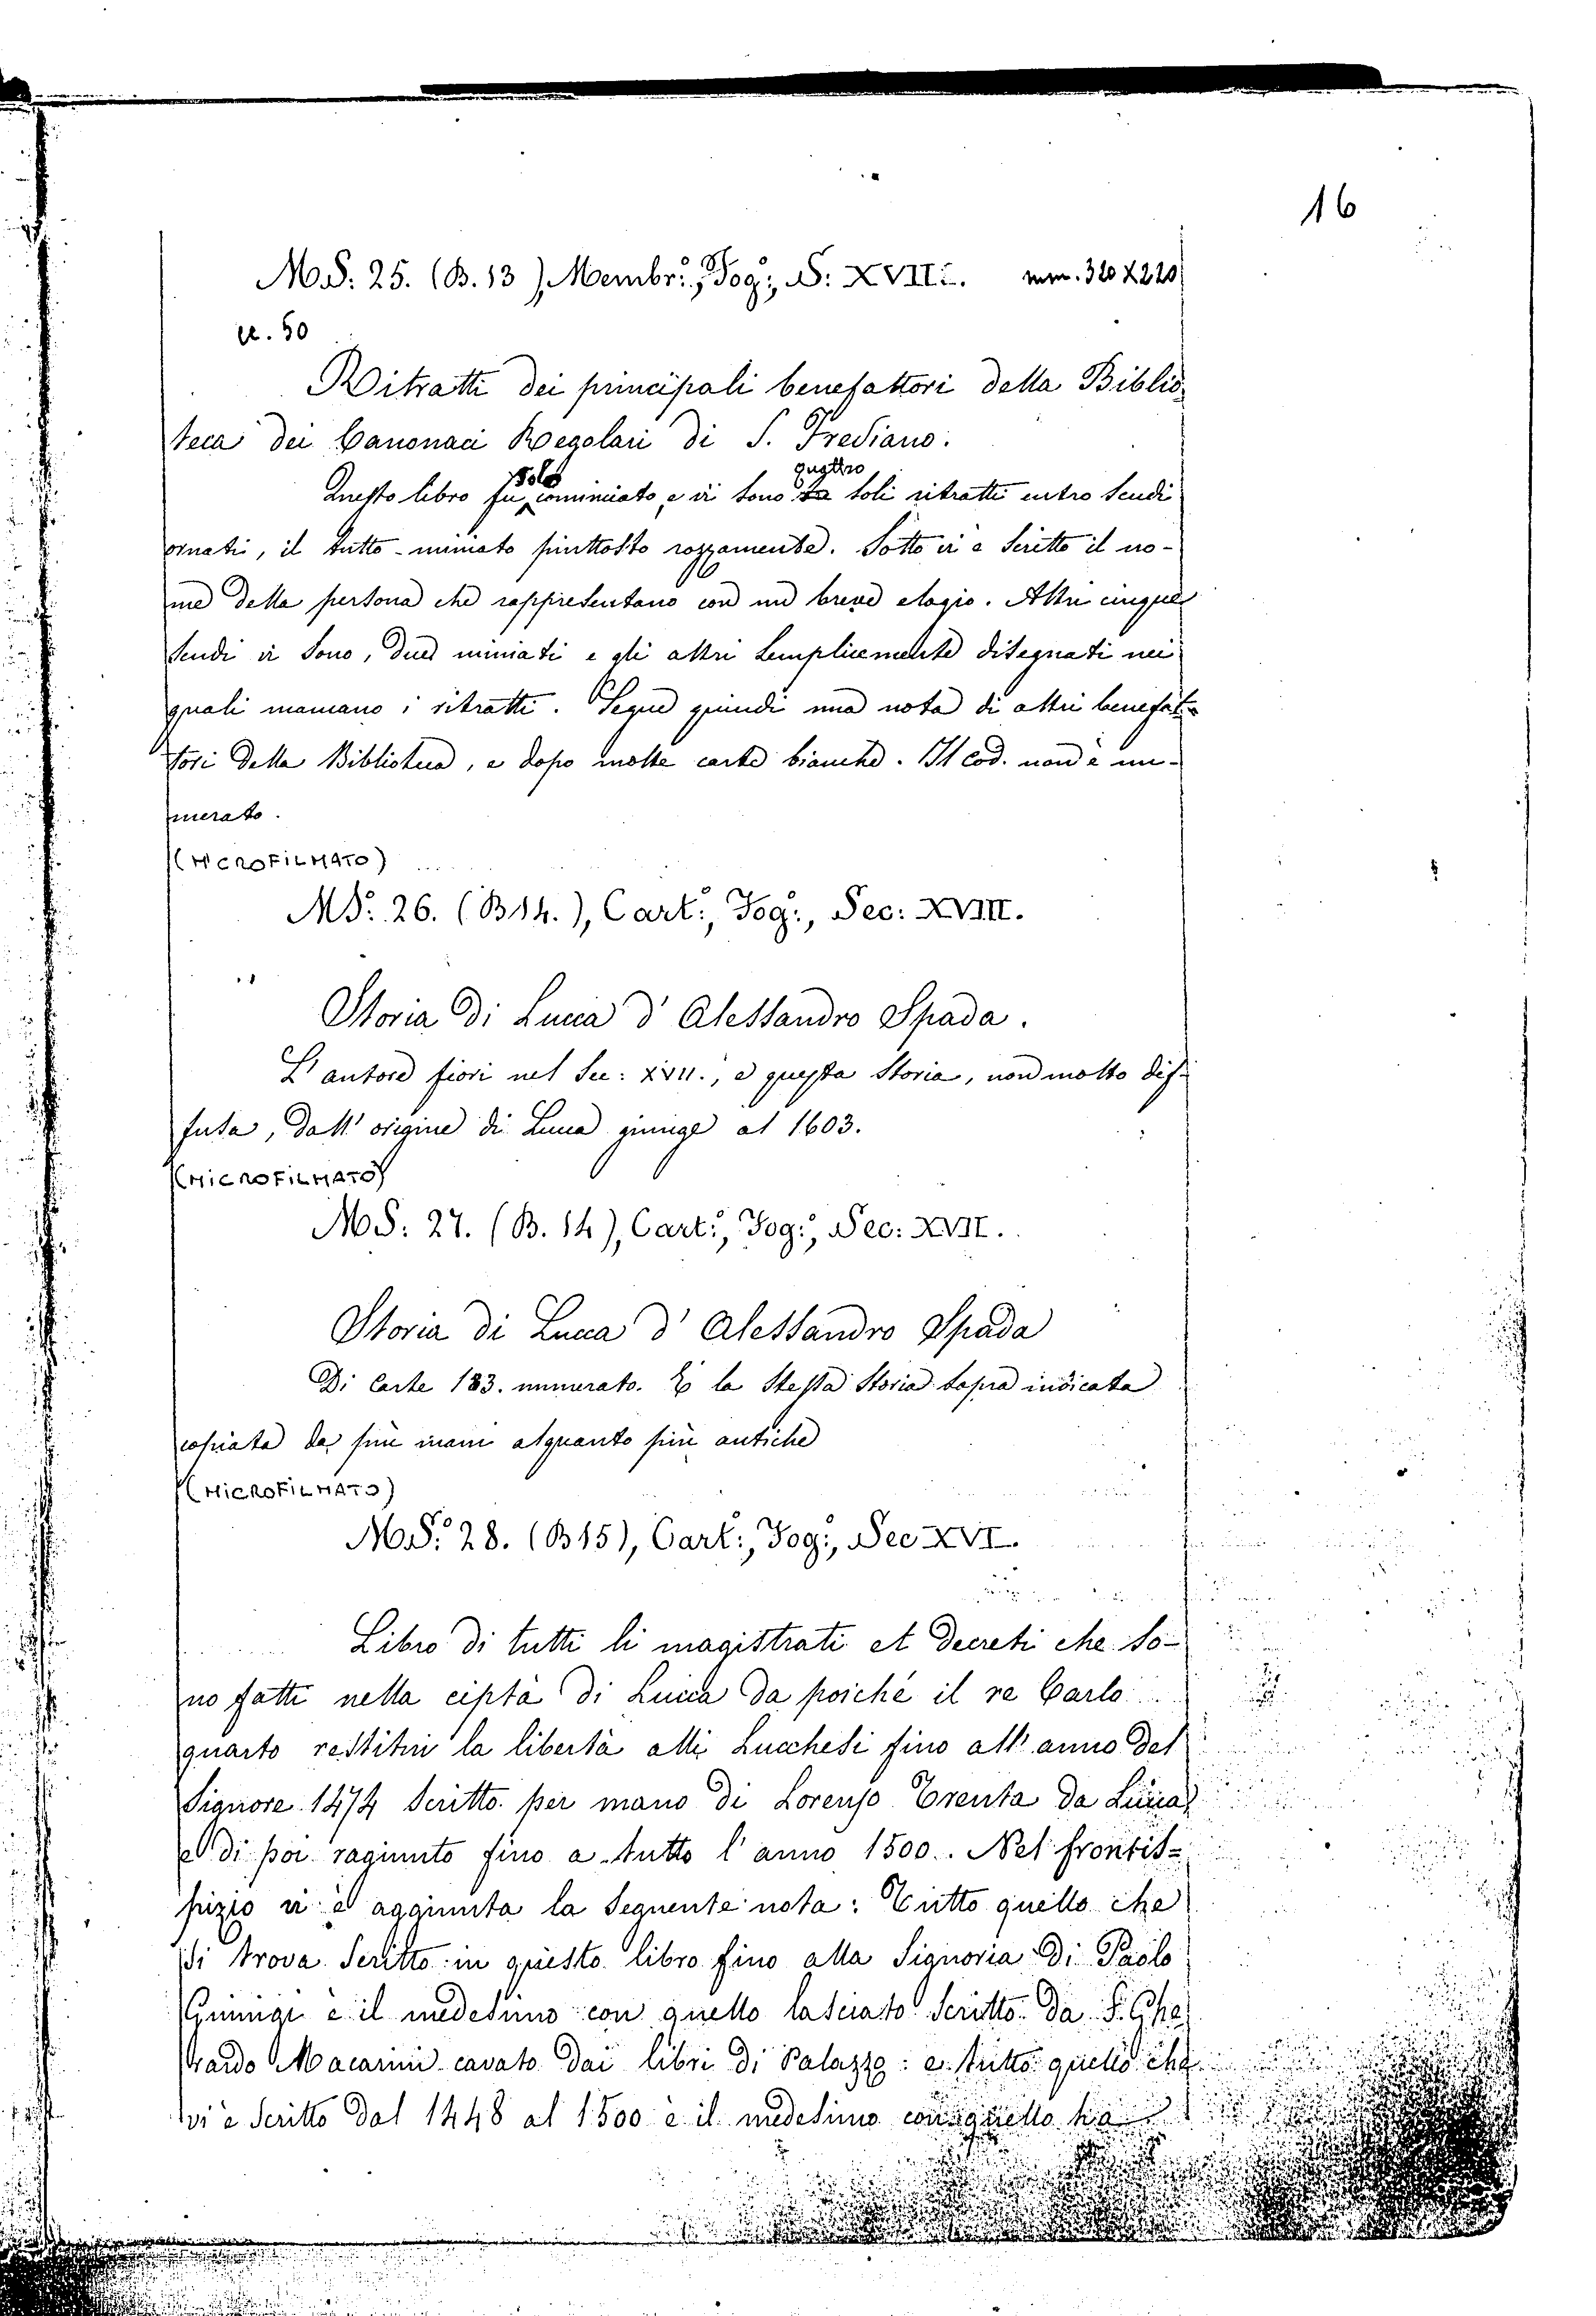 16
MS: 25. (B. 13), Membr:, Fog:, S: XVII:. mm. 320 X 220
cc. 50
Ritratti dei principali benefattori della Biblio-
teca dei Canonaci Regolari di S. Frediano.
solo quattro
Questo libro fu cominciato, e vi sono soli ritratti entro scudi
ornati, il tutto miniato piuttosto rozzamente. Sotto vi è scritto il no-
me della persona che rappresentano con un breve elogio. Altri cinque
scudi vi sono, due miniati e gli altri semplicemente disegnati nei
quali mancano i ritratti. Segue quindi una nota di altri benefat-
tori della Biblioteca, e dopo molte carte bianche. Il Cod. non è nu-
merato.
(MICROFILMATO)
MS: 26. (B14.), Cart:, Fog:, Sec: XVIII.
Storia di Lucca d' Alessandro Spada.
L' autore fiorì nel Sec: XVII., e questa Storia, non molto dif-
fusa, dall' origine di Lucca giunge al 1603.
(MICROFILMATO)
MS: 27. (B. 14), Cart:, Fog:, Sec: XVII.
Storia di Lucca d' Alessandro Spada
Di Carte 183. numerato. È la stessa Storia sopra indicata
copiata da più mani alquanto più antiche
(MICROFILMATO)
MS: 28. (B15), Cart:, Fog:, Sec XVI.
Libro di tutti li magistrati et decreti che so-
no fatti nella ciptà di Lucca da poiché il re Carlo
quarto restituì la libertà alli Lucchesi fino all' anno del
Signore 1474 scritto per mano di Lorenzo Trenta da Lucca,
e di poi ragiunto fino a tutto l' anno 1500. Nel frontis-
pizio vi è aggiunta la seguente nota: Tutto quello che
si trova scritto in questo libro fino alla Signoria di Paolo
Guinigi è il medesimo con quello lasciato scritto da S. Ghe
rardo Macarini cavato dai libri di Palazzo: e tutto quello che
vi è scritto dal 1448 al 1500 è il medesimo con quello ha